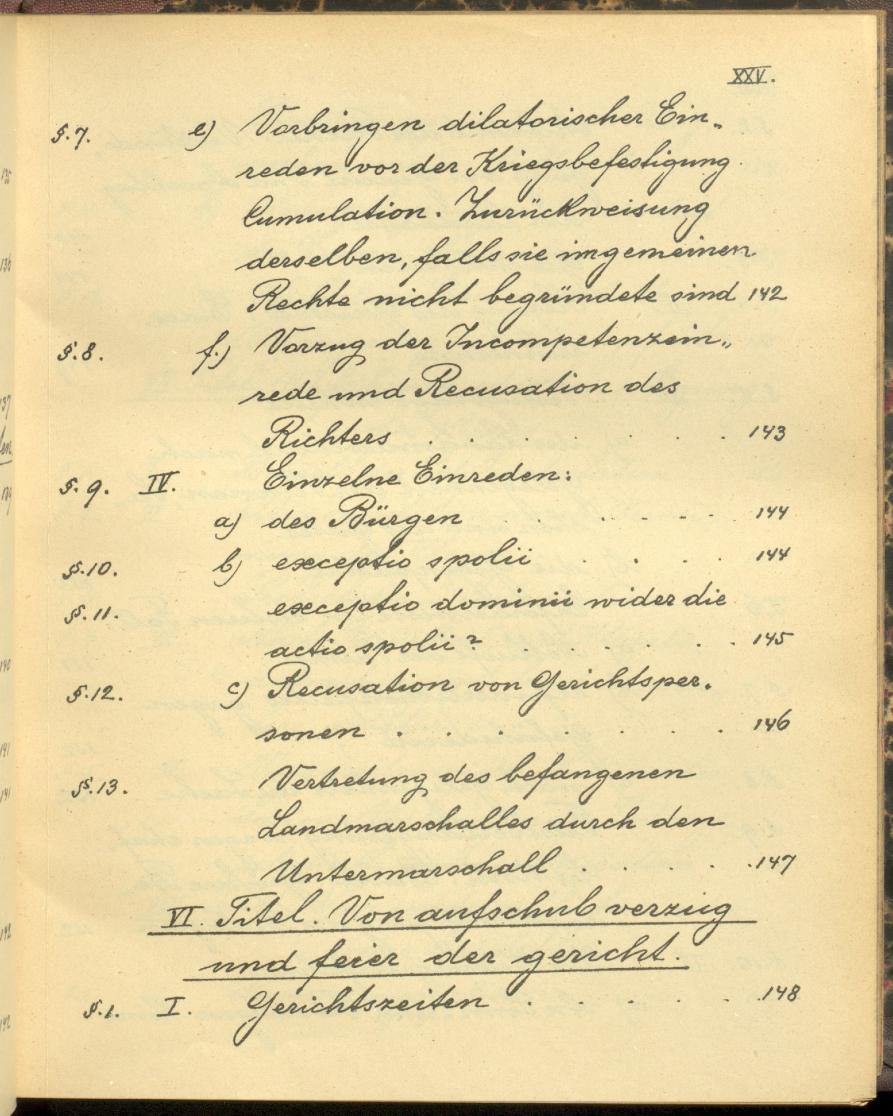 XXV.
§.7. e) Vorbringen dilatorischer Ein-
reden vor der Kriegsbefestigung.
Cumulation. Zurückweisung
derselben, falls sie im gemeinen
Rechte nicht begründete sind 142
§.8. f.) Vorzug der Incompetenzein-
rede und Recusation des
Richters . . . . . . 143
§.9. IV. Einzelne Einreden:
a) des Bürgen . . . . . 144
§.10. b) exceptio spolii . . . . 144
§.11. exceptio dominii wider die
actio spolii? . . . . . . 145
§.12. c) Recusation von Gerichtsper-
sonen . . . . . . . . 146
§.13. Vertretung des befangenen
Landmarschalles durch den
Untermarschall . . . . . 147
VI. Titel. Von aufschub verzug
und feier der gericht.
§.1. I. Gerichtszeiten . . . . . 148